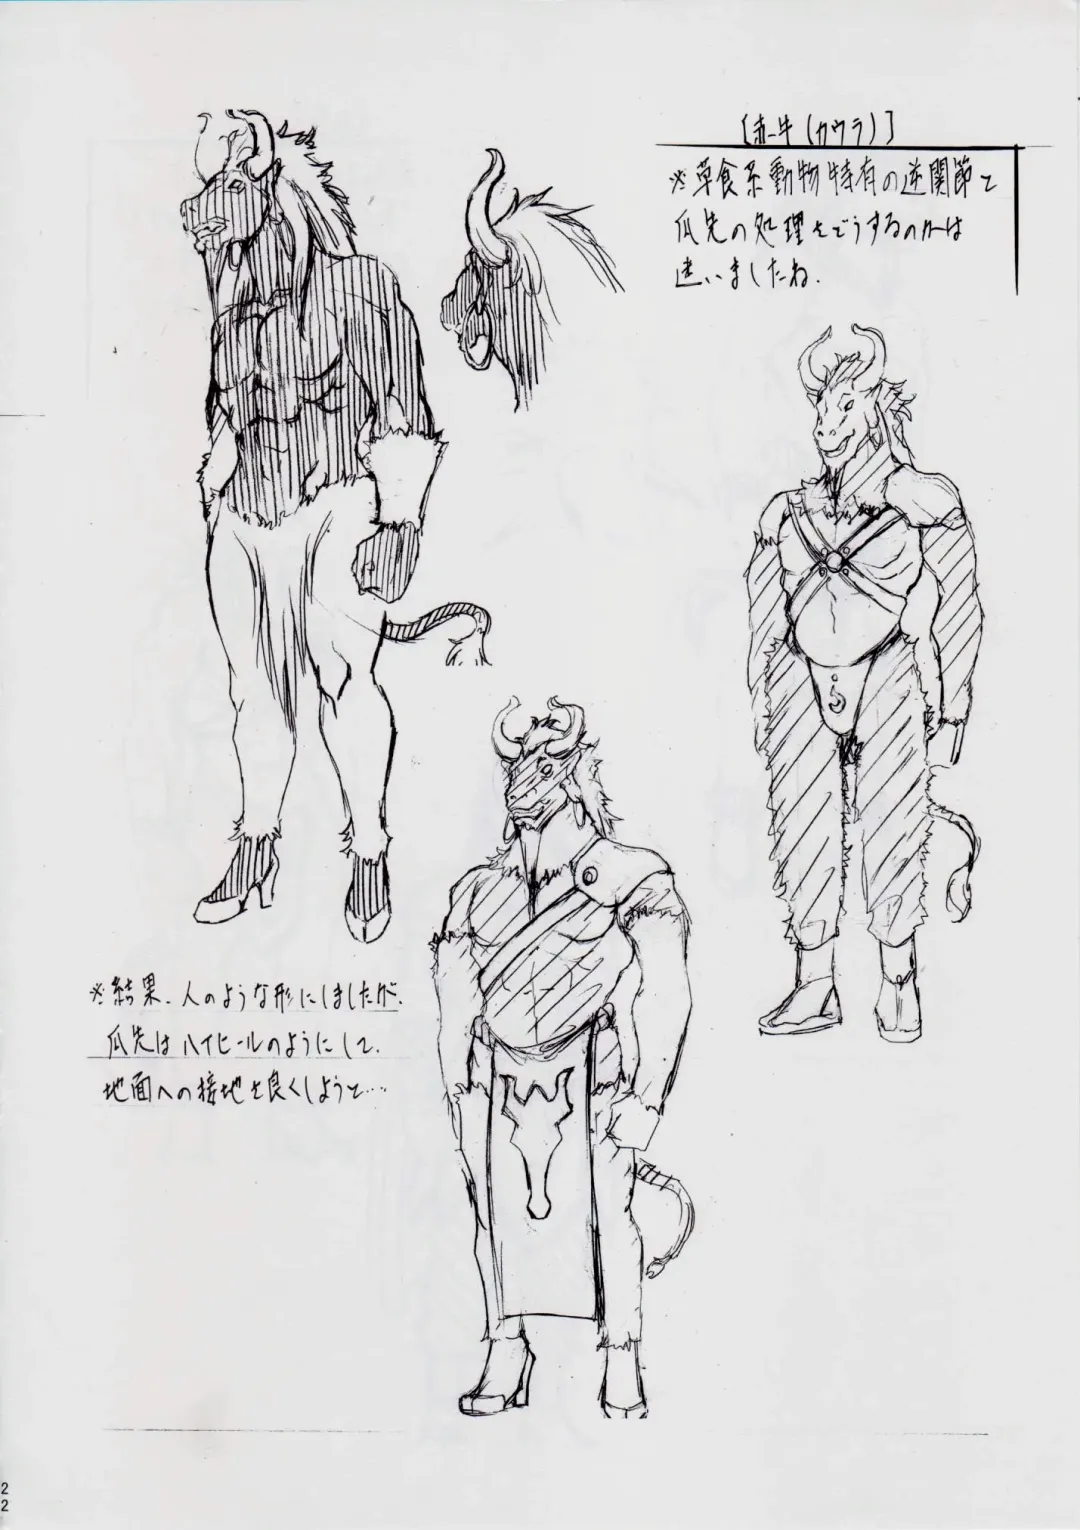 [赤牛(カウラ)]
※草食系動物特有の逆関節と
爪先の処理をどうするのかは
迷いましたね.
※結果.人のような形にしましたが.
爪先はハイヒールのようにして.
地面への接地を良くしようと…
22